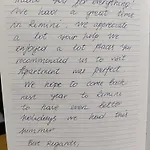 Thank you for everything!
We had a great time
in Rimini. We appreciate
a lot your help. We
enjoyed a lot places you
recommended us to visit.
Apartment was perfect.
We hope to come back
next year to Rimini
to have even better
holidays we had this
summer.
Best Regards,